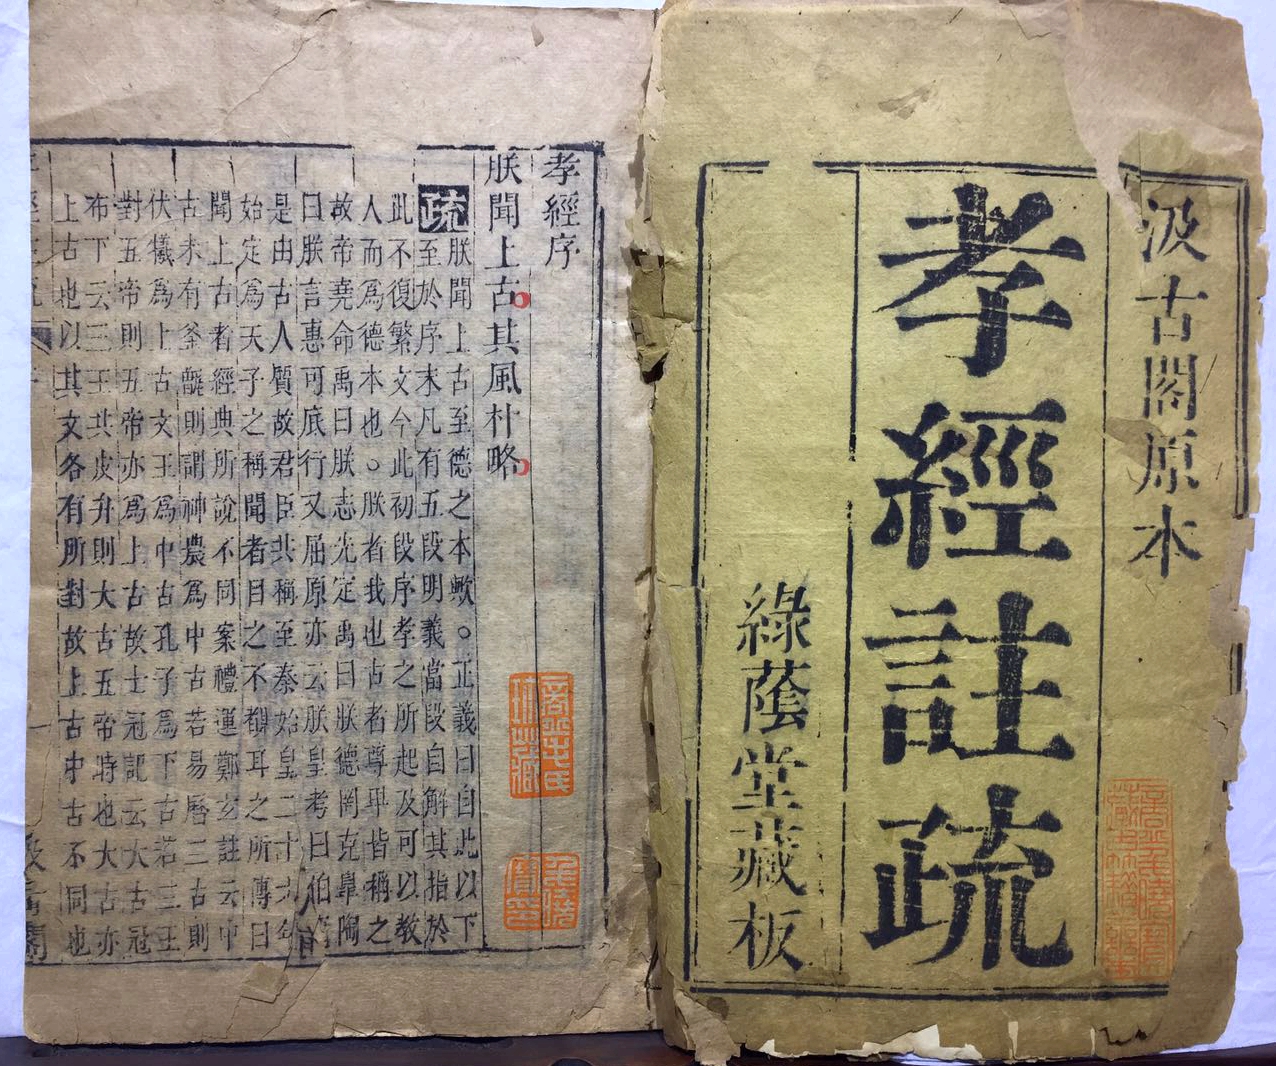 汲古閣原本
孝經註疏
綠蔭堂藏板
孝經序
朕聞上古其風朴略
疏朕聞上古至德之本歟。正義曰自此以下
至於序末凡有五段明義當段自解其指於
此不復繁文今此初段序孝之所起及可以教
人而爲德本也。朕者我也古者尊卑皆稱之
故帝堯命禹曰朕志先定禹曰朕德罔克臯陶
曰朕言惠可底行又屈原亦云朕皇考曰伯
是由古人質故君臣共稱至秦始皇二十六年
始定爲天子之稱聞者目之不都耳之所傳曰
聞上古者經典所說不同案禮運鄭玄註云中
古未有釜甑則謂神農爲中古若易曆三古則
伏犧爲上古文王爲中古孔子爲下古若三王
對五帝則五帝亦爲上古故士冠記云大古冠
布下云三王共皮弁則大古五帝時也大古亦
上古也以其文各有所對故上古中古不同也